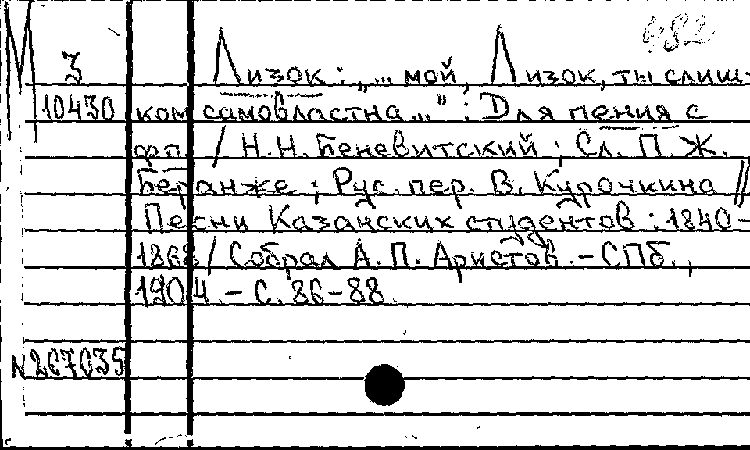 482
М
3
10430
Лизок: „... мой, Лизок, ты слиш-
ком самовластна...": Для пения с
фп. / Н.Н. Беневитский; Сл. П.Ж.
Беранже; Рус. пер. В. Курочкина //
Песни Казанских студентов: 1840-
1868 / Собрал А.П. Аристов. - СПб.,
1904. - С. 86-88.
N267035